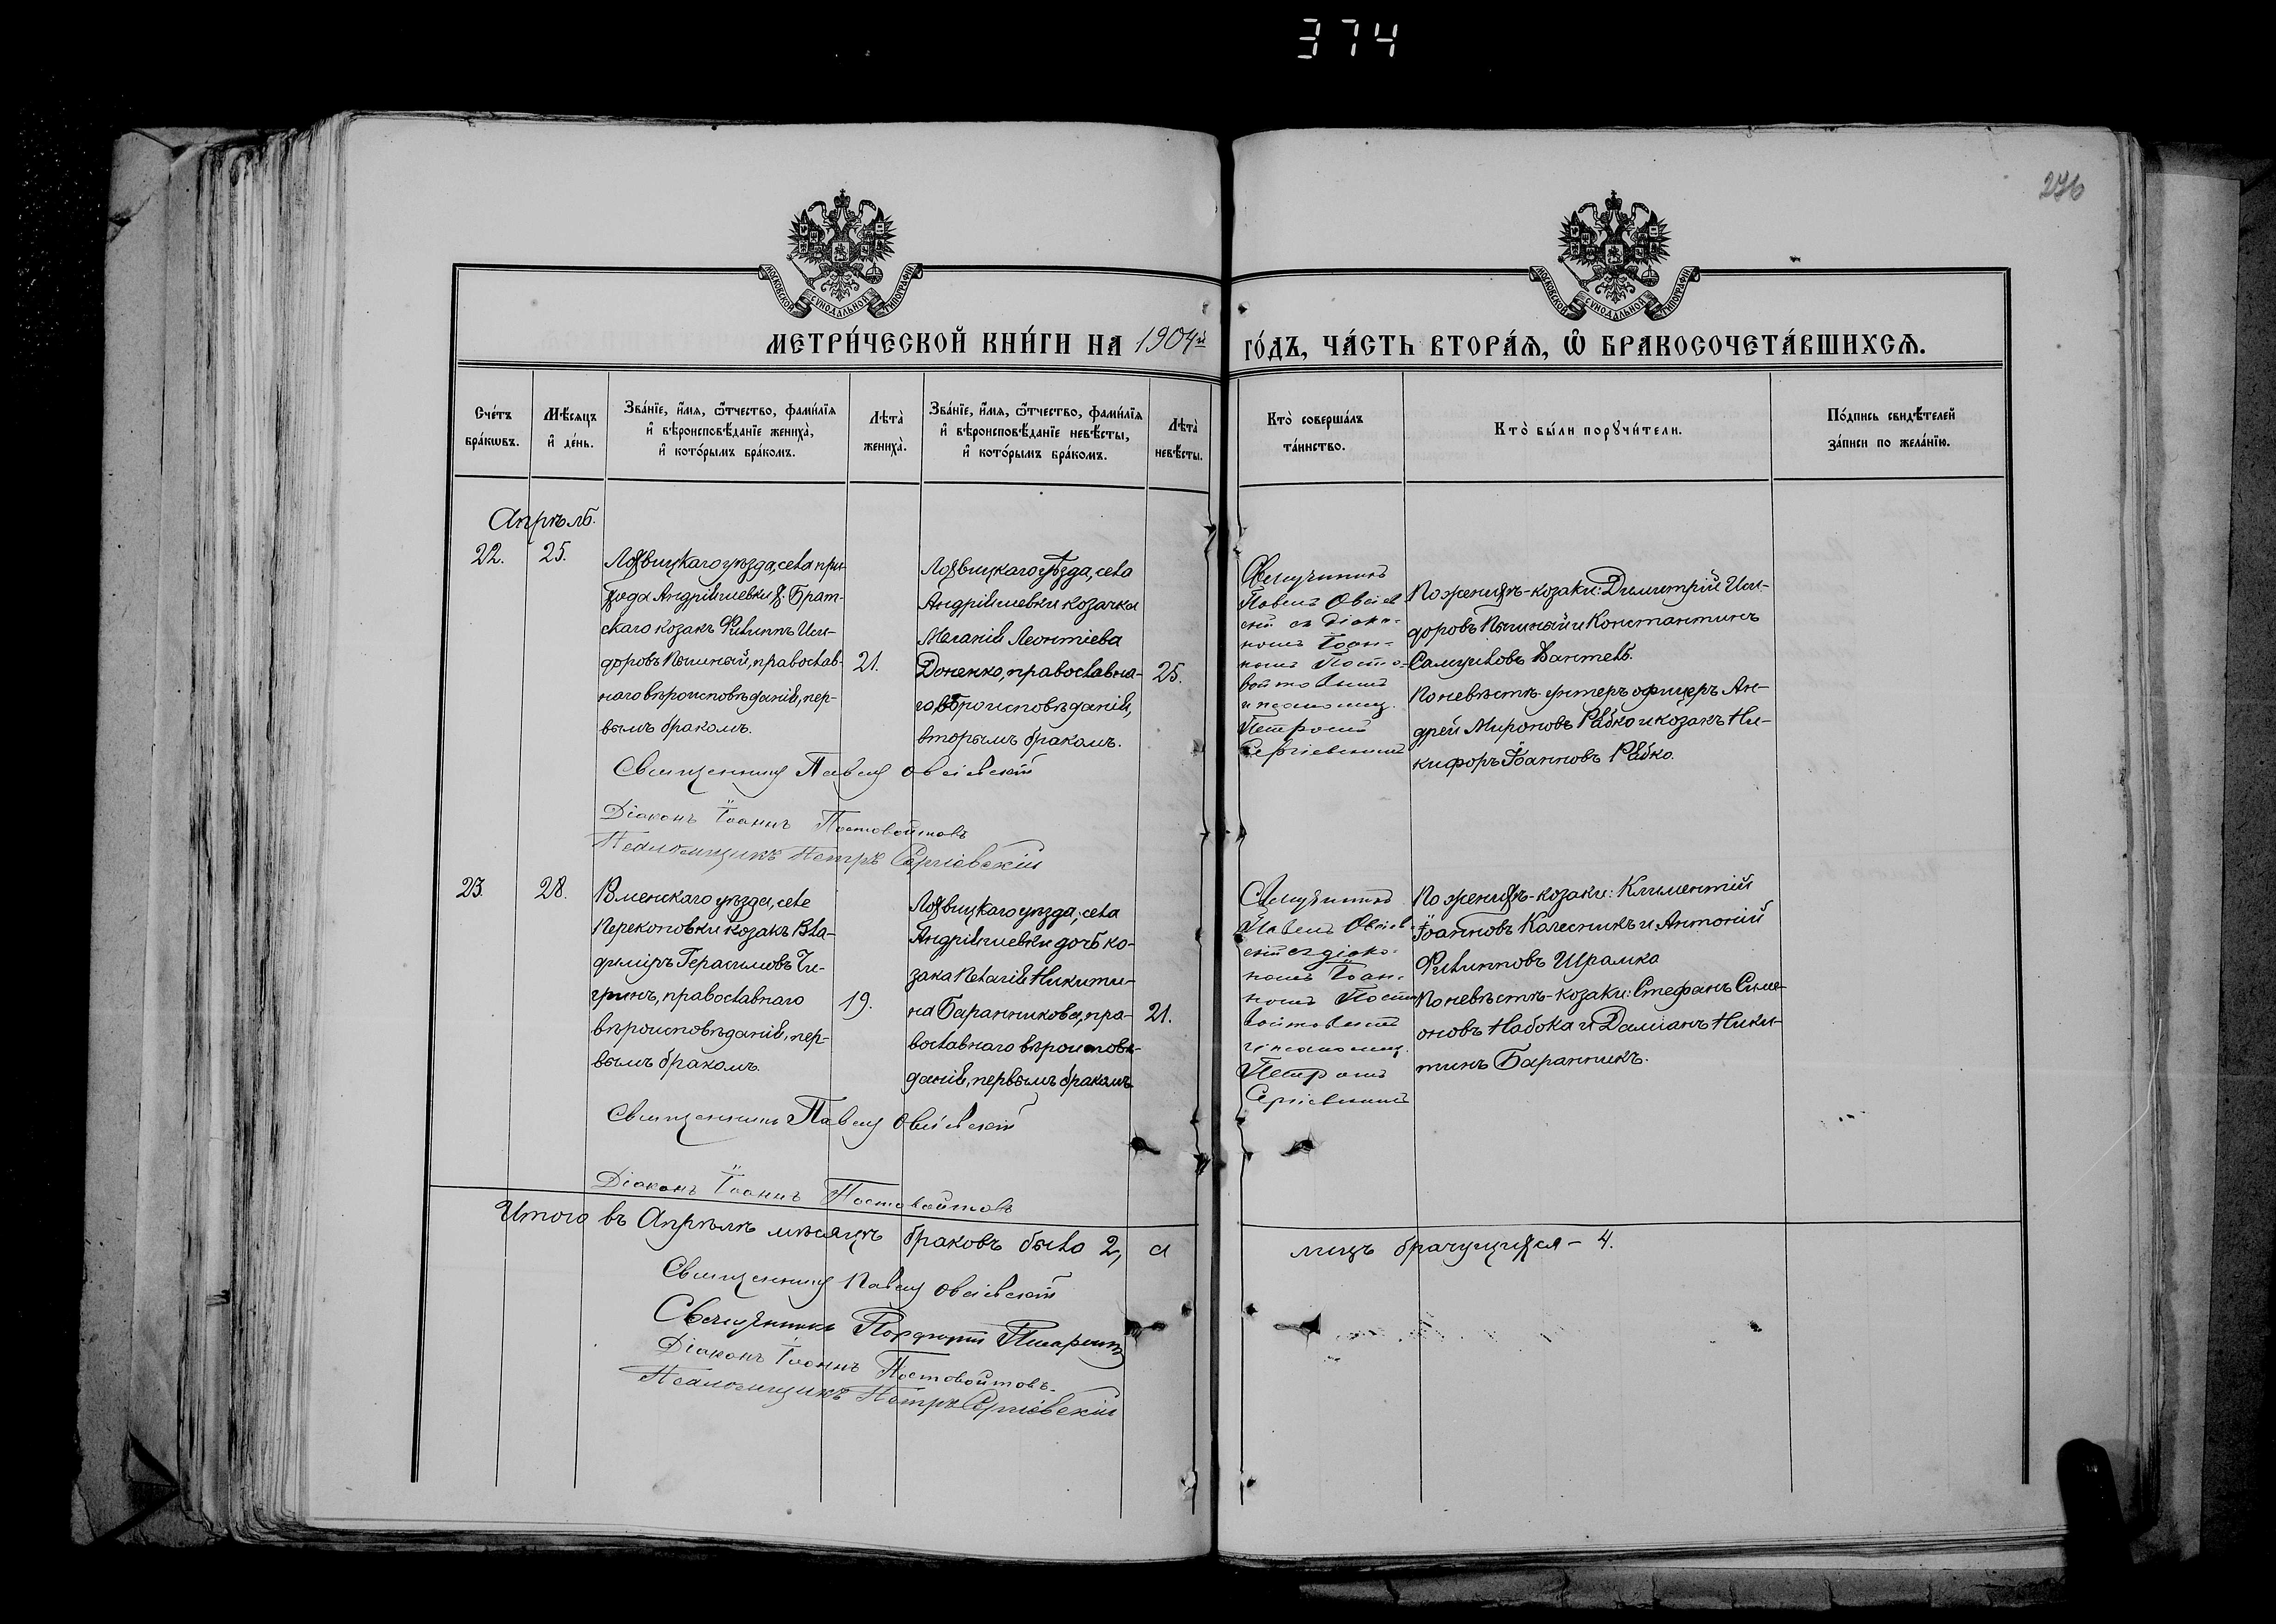 374
276
МОСКОВСКОЙ СѴНОДАЛЬНОЙ ТИПОГРАФІИ
МОСКОВСКОЙ СѴНОДАЛЬНОЙ ТИПОГРАФІИ
МЕТРИ́ЧЕСКОЙ КНИ́ГИ НА 1904й
ГО́ДЪ, ЧА́СТЬ ВТОРА́Я, Ѽ БРАКОСОЧЕТА́ВШИХСЯ.
Сче́тъ
бра́кωвъ.
Мѣ́сяцъ
и҆ де́нь.
Зва́нїе, и҆́мя, ѻ҆́тчество, фами́лїя
и҆ вѣроисповѣ́данїе жениха̀,
и҆ кото́рымъ бра́комъ.
Лѣ́та
жениха̀.
Зва́нїе, и҆́мя, ѻ҆́тчество, фами́лїя
и҆ вѣроисповѣ́данїе невѣ́сты,
и҆ кото́рымъ бра́комъ.
Лѣ́та
невѣ́сты.
Кто̀ соверша́лъ
та́инство.
Кто̀ бы́ли порꙋчи́тели.
По́дпись свидѣ́телей
за́писи по жела́нїю.
Апрѣль.
22.
25.
Лохвицкаго уѣзда, села при-
хода Андріяшевки х. Брат-
скаго козакъ Филиппъ Иси-
доровъ Пышный, православ-
наго вѣроисповѣданія, пер-
вымъ бракомъ.
21.
Лохвицкаго уѣзда, села
Андріяшевки козачка
Меланія Леонтіева
Доненко, православна-
го вѣроисповѣданія,
вторымъ бракомъ.
25.
Священникъ
Павелъ Овсіев
скій съ діако-
номъ Іоан-
номъ Посто-
войтовымъ
и псаломщ.
Петромъ
Сергіевскимъ
По женихѣ-козаки: Димитрій Иси-
доровъ Пышный и Константинъ
Самуиловъ Вантехъ.
По невѣстѣ-унтеръ офицеръ Ан-
дрей Мироновъ Рябко и козакъ Ни-
кифоръ Іоанновъ Рябко.
Священникъ Павелъ Овсіевскій
Діаконъ Іоаннъ Постовойтовъ
Псаломщикъ Петръ Сергіевскій
23.
28.
Роменскаго уѣзда, села
Перекоповки козакъ Вла-
диміръ Герасимовъ Чи-
гринъ, православнаго
вѣроисповѣданія, пер-
вымъ бракомъ.
19.
Лохвицкаго уѣзда, села
Андріяшевки дочь ко-
зака Пелагія Никити-
на Баранникова, пра-
вославнаго вѣроисповѣ-
данія, первымъ бракомъ
21.
Священникъ
Павелъ Овсіев-
скій съ діако-
номъ Іоан-
номъ Посто
войтовымъ
и псаломщ.
Петромъ
Сергіевскимъ
По женихѣ-козаки: Климентій
Іоанновъ Калесникъ и Антоній
Филипповъ Шрамко
По невѣстѣ-козаки: Стефанъ Симе-
оновъ Набока и Даміанъ Ники-
тинъ Баранникъ.
Священникъ Павелъ Овсіевскій
Діаконъ Іоаннъ Постовойтовъ
Итого въ Апрѣлѣ мѣсяцѣ браковъ было 2, а
лицъ брачущихся - 4.
Священникъ Павелъ Овсіевскій
Священникъ
Діаконъ Іоаннъ Постовойтовъ.
Псаломщикъ Петръ Сергіевскій